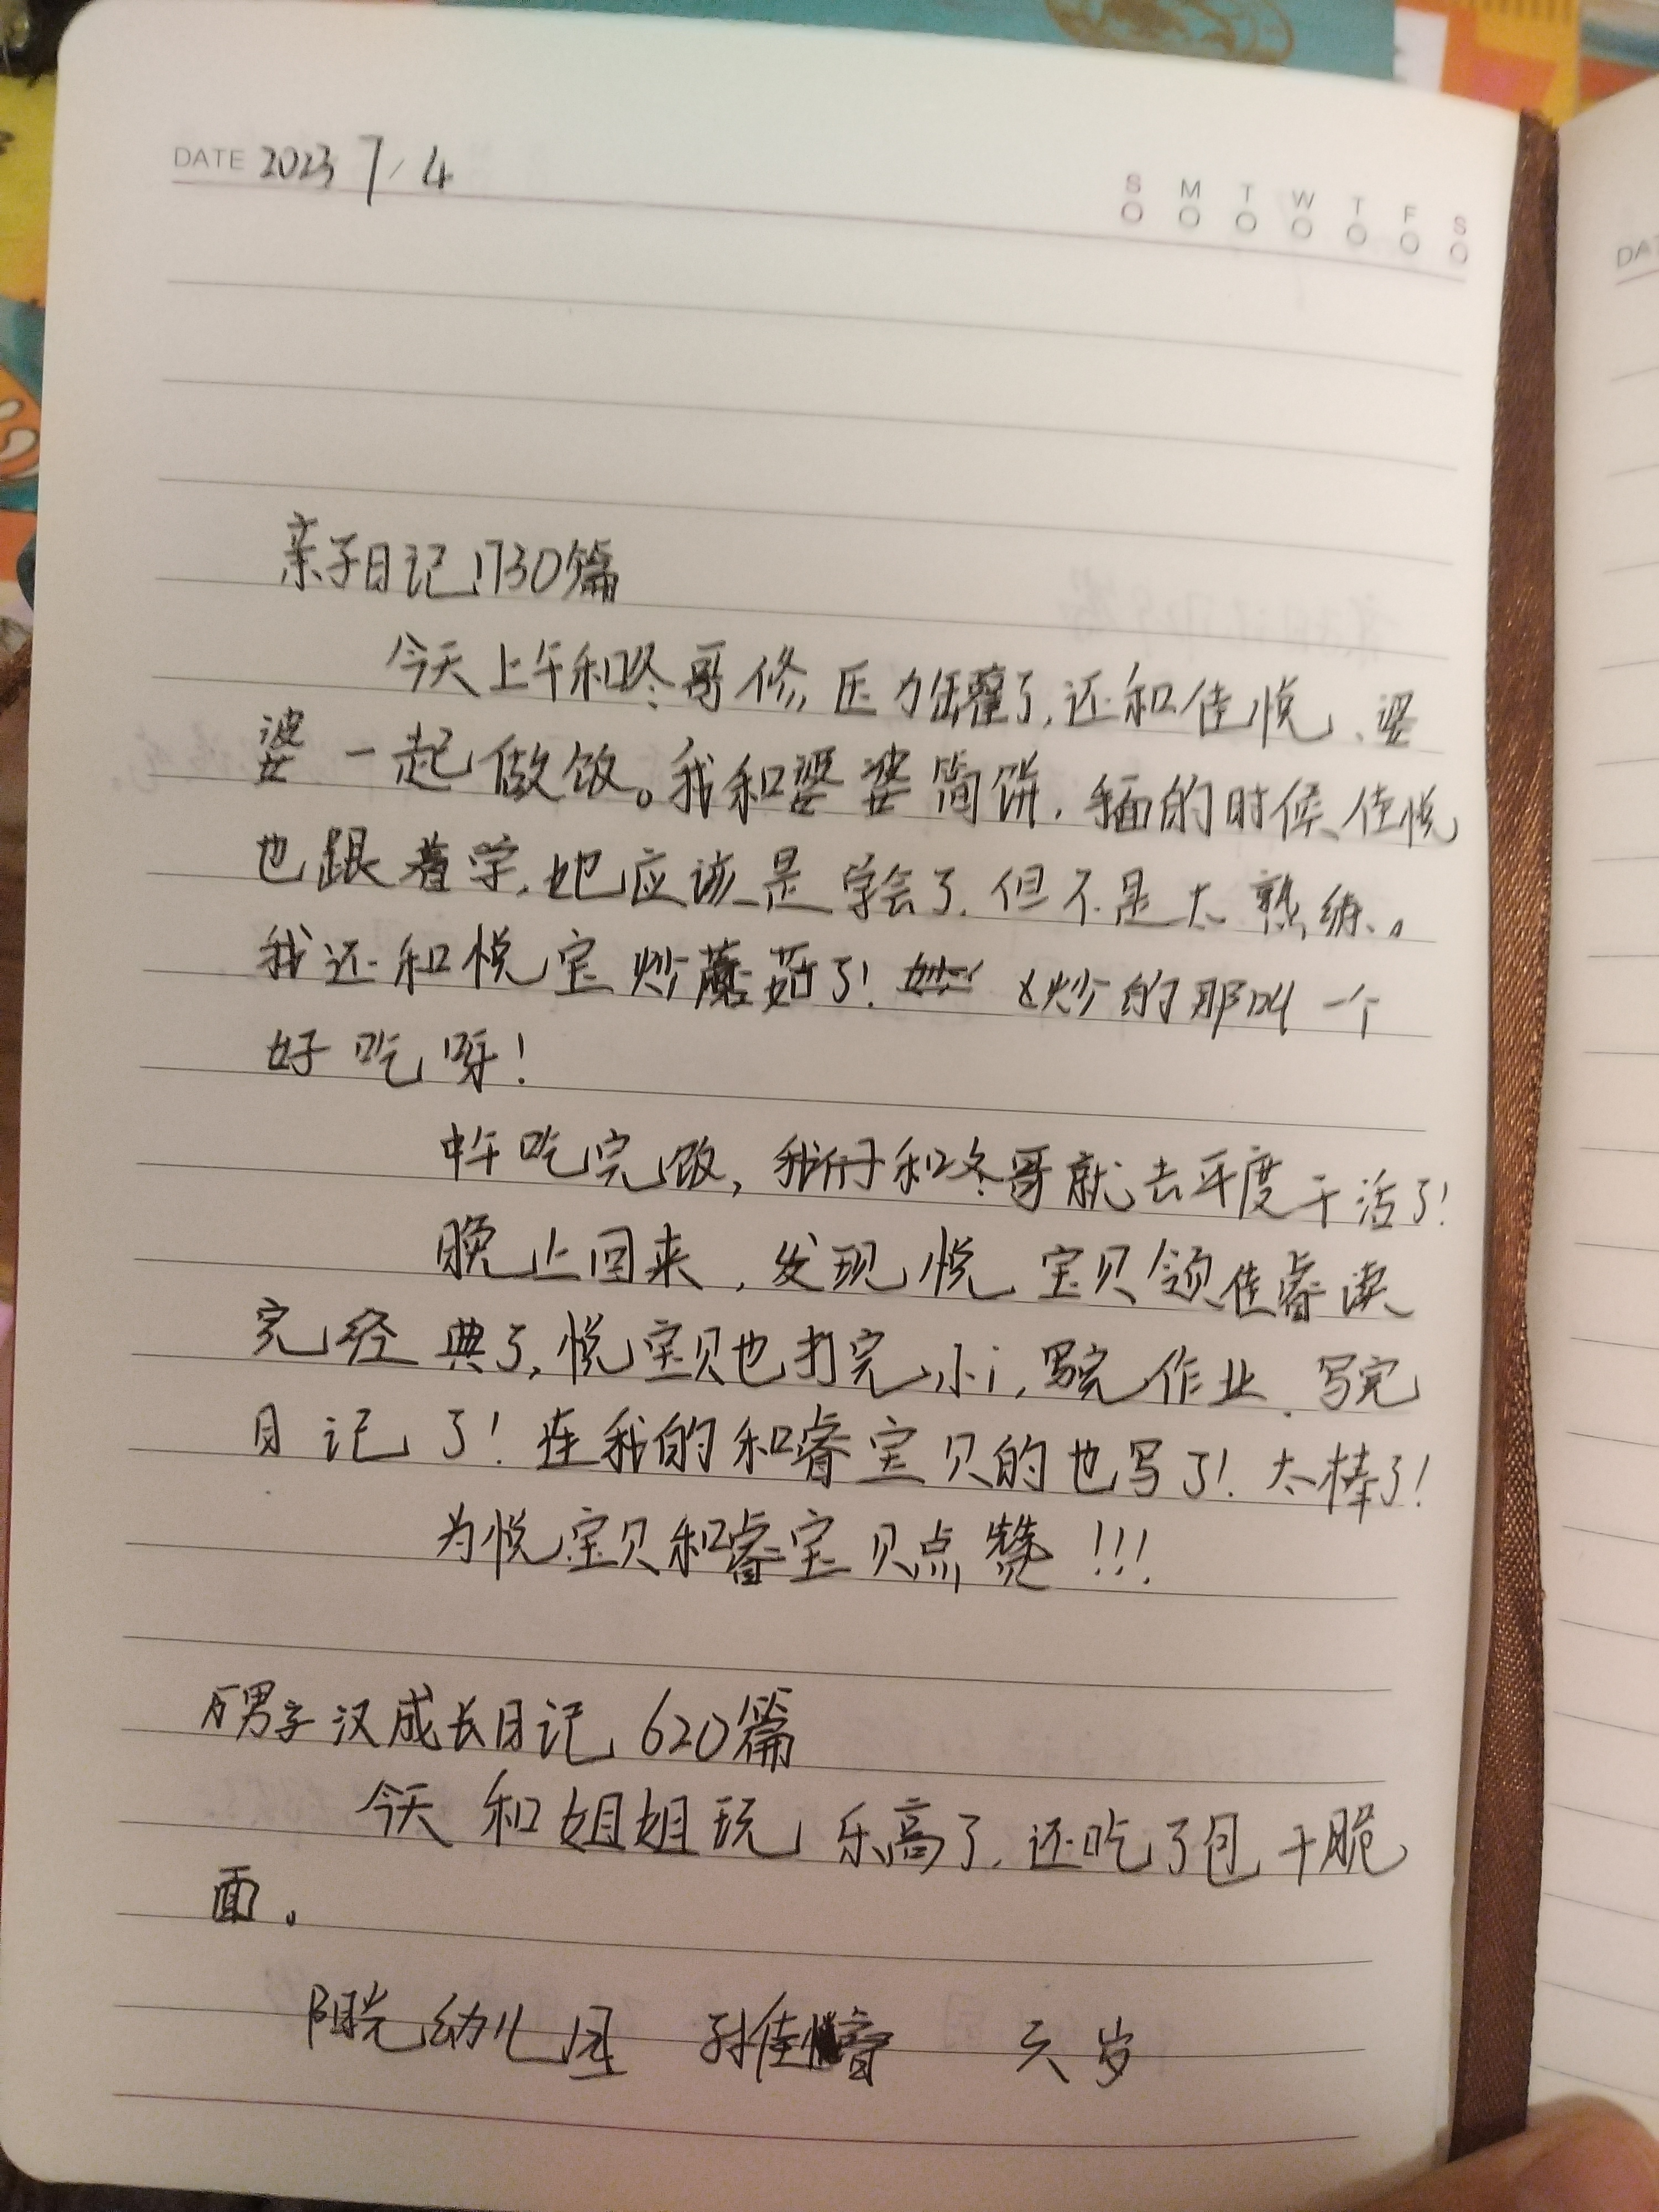 DATE 2023 7/4
S M T W T F S
亲子日记1730篇
今天上午和咚哥修压力罐了，还和佳悦、婆
婆一起做饭。我和婆婆简饼，面的时候、佳悦
也跟着学，她应该是学会了，但不是太熟练。
我还和悦宝炒蘑菇了！炒的那叫一个
好吃呀！
中午吃完饭，我们和咚哥就去平度干活了！
晚上回来，发现悦宝贝领佳睿读
完经典了，悦宝贝也打完小i，写完作业、写完
日记了！连我的和睿宝贝的也写了！太棒了！
为悦宝贝和睿宝贝点赞!!!
男子汉成长日记620篇
今天和姐姐玩乐高了，还吃了包干脆
面。
阳光幼儿园 孙佳睿 六岁
DAT